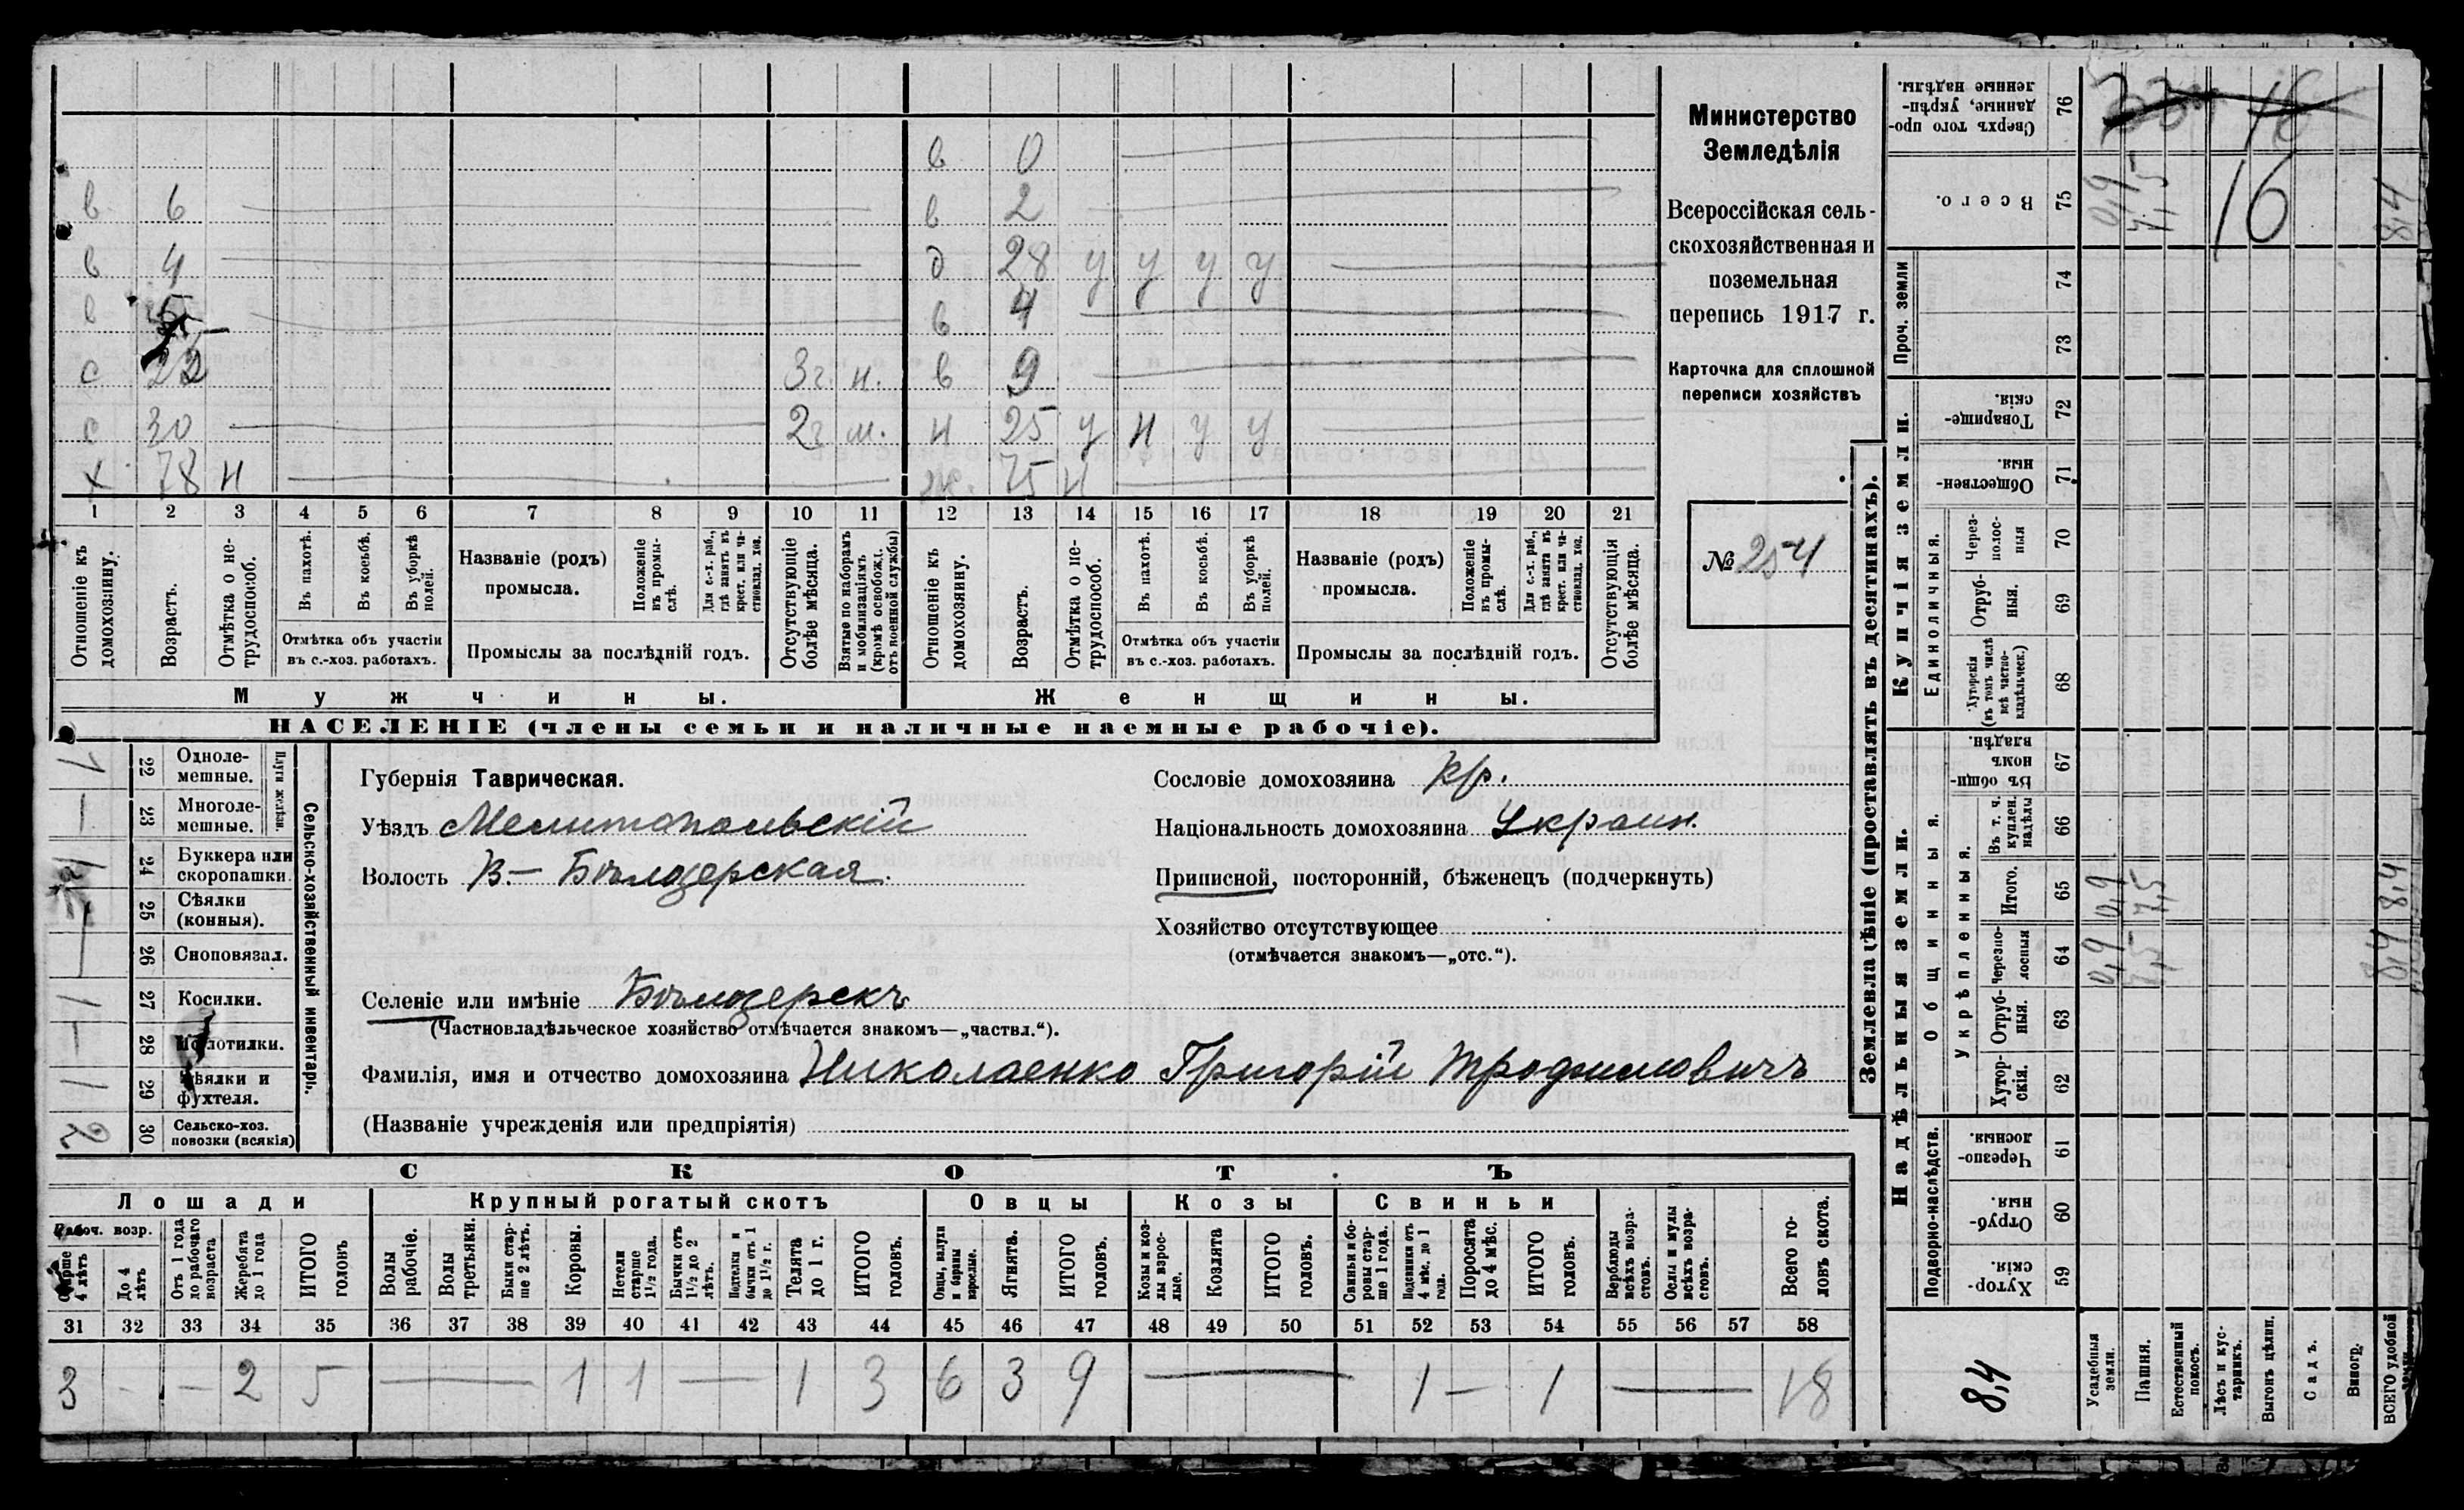 в 0
в 6 в 2
в 4 д 28 у у у у
в 5 в 4
с 3г. н. в 9
с 30 2г м. н 25 у н у у
х 78 н ж. 75 н
1 2 3 4 5 6 7 8 9 10 11 12 13 14 15 16 17 18 19 20 21
Отношеніе къ домохозяину.
Возрастъ.
Отмѣтка о не-
трудоспособ.
Въ пахотѣ.
Въ косьбѣ.
Въ уборкѣ полей.
Отмѣтка объ участіи
въ с.-хоз. работахъ.
Названіе (родъ)
промысла.
Положеніе въ промы-
слѣ.
Для с.-х. раб., гдѣ занятъ въ крест. или ча-
стновлад. хоз.
Промыслы за послѣдній годъ.
Отсутствующіе болѣе мѣсяца.
Взятые по наборамъ и мобилизаціямъ (кромѣ освобожд. отъ военной службы)
Отношеніе къ домохозяину.
Возрастъ.
Отмѣтка о не-
трудоспособ.
Въ пахотѣ.
Въ косьбѣ.
Въ уборкѣ полей.
Отмѣтка объ участіи
въ с.-хоз. работахъ.
Названіе (родъ)
промысла.
Положеніе въ промы-
слѣ.
Для с.-х. раб., гдѣ занята въ крест. или ча-
стновлад. хоз.
Промыслы за послѣдній годъ.
Отсутствующія болѣе мѣсяца.
Мужчины. Женщины.
НАСЕЛЕНІЕ (члены семьи и наличные наемные рабочіе).
Министерство
Земледѣлія
Всероссійская сель-
скохозяйственная и
поземельная
перепись 1917 г.
Карточка для сплошной
переписи хозяйствъ
№ 254
Сельско-хозяйственный инвентарь.
Плуги желѣзн.
22 Одноле-
мешные. 1
23 Многоле-
мешные. —
24 Буккера или
скоропашки.
25 Сѣялки
(конныя).
26 Сноповязал. —
27 Косилки. 1
28 Молотилки. —
29 Вѣялки и
фухтеля. 1
30 Сельско-хоз.
повозки (всякія) 2
Губернія Таврическая.
Уѣздъ Мелитопольскій
Волость В.- Бѣлозерская.
Селеніе или имѣніе Бѣлозерскъ
(Частновладѣльческое хозяйство отмѣчается знакомъ—„частвл.“).
Фамилія, имя и отчество домохозяина Николаенко Григорій Трофимовичъ
(Названіе учрежденія или предпріятія)
Сословіе домохозяина кр.
Національность домохозяина Украин.
Приписной, посторонній, бѣженецъ (подчеркнуть)
Хозяйство отсутствующее
(отмѣчается знакомъ—„отс.“).
СКОТЪ
Лошади Крупный рогатый скотъ Овцы Козы Свиньи
Рабоч. возр.
Старше 4 лѣтъ
До 4 лѣтъ
Отъ 1 года до рабочаго возраста
Жеребята до 1 года
ИТОГО головъ
Волы рабочіе.
Волы третьяки.
Быки стар-
ше 2 лѣтъ.
Коровы.
Нетели старше 1½ года.
Бычки отъ 1½ до 2 лѣтъ.
Подтелки и бычки отъ 1 до 1½ г.
Телята до 1 г.
ИТОГО головъ.
Овцы, валухи и бараны взрослые.
Ягнята.
ИТОГО головъ.
Козы и коз-
лы взрос-
лые.
Козлята
ИТОГО головъ.
Свиньи и бо-
ровы стар-
ше 1 года.
Подсвинки отъ 4 мѣс. до 1 года.
Поросята до 4 мѣс.
ИТОГО головъ.
Верблюды всѣхъ возра-
стовъ.
Ослы и мулы всѣхъ возра-
стовъ.
Всего го-
ловъ скота.
31 32 33 34 35 36 37 38 39 40 41 42 43 44 45 46 47 48 49 50 51 52 53 54 55 56 57 58
3 - — 2 5 — 1 1 — 1 3 6 3 9 — 1 — 1 — 18
Землевладѣніе (проставлять въ десятинахъ).
Купчія земли.
Надѣльныя земли.
Сверхъ того про-
данные, укрѣп-
ленные надѣлы. 76
Всего. 75 0,9 7,5 16 8,4
Проч. земли
74
73
Товарище-
скія. 72
Обществен-
ныя. 71
Единоличныя.
Через-
полос-
ныя 70
Отруб-
ныя. 69
Хуторскія
(въ томъ числѣ
всѣ частно-
владѣльческ.) 68
Общинныя.
Въ общин-
номъ
владѣн. 67
Укрѣпленныя.
Въ т. ч.
куплен.
надѣлы 66
Итого. 65 0,9 7,5 8,4
Черезпо-
лосныя 64 0,9 7,5 8,4
Отруб-
ныя. 63
Хутор-
скія. 62
Подворно-наслѣдств.
Черезпо-
лосныя. 61
Отруб-
ныя. 60
Хутор-
скія. 59
8,4
Усадебныя земли.
Пашня.
Естественный покосъ.
Лѣсъ и кус-
тарникъ.
Выгонъ цѣлин.
Садъ.
Виногр.
ВСЕГО удобной